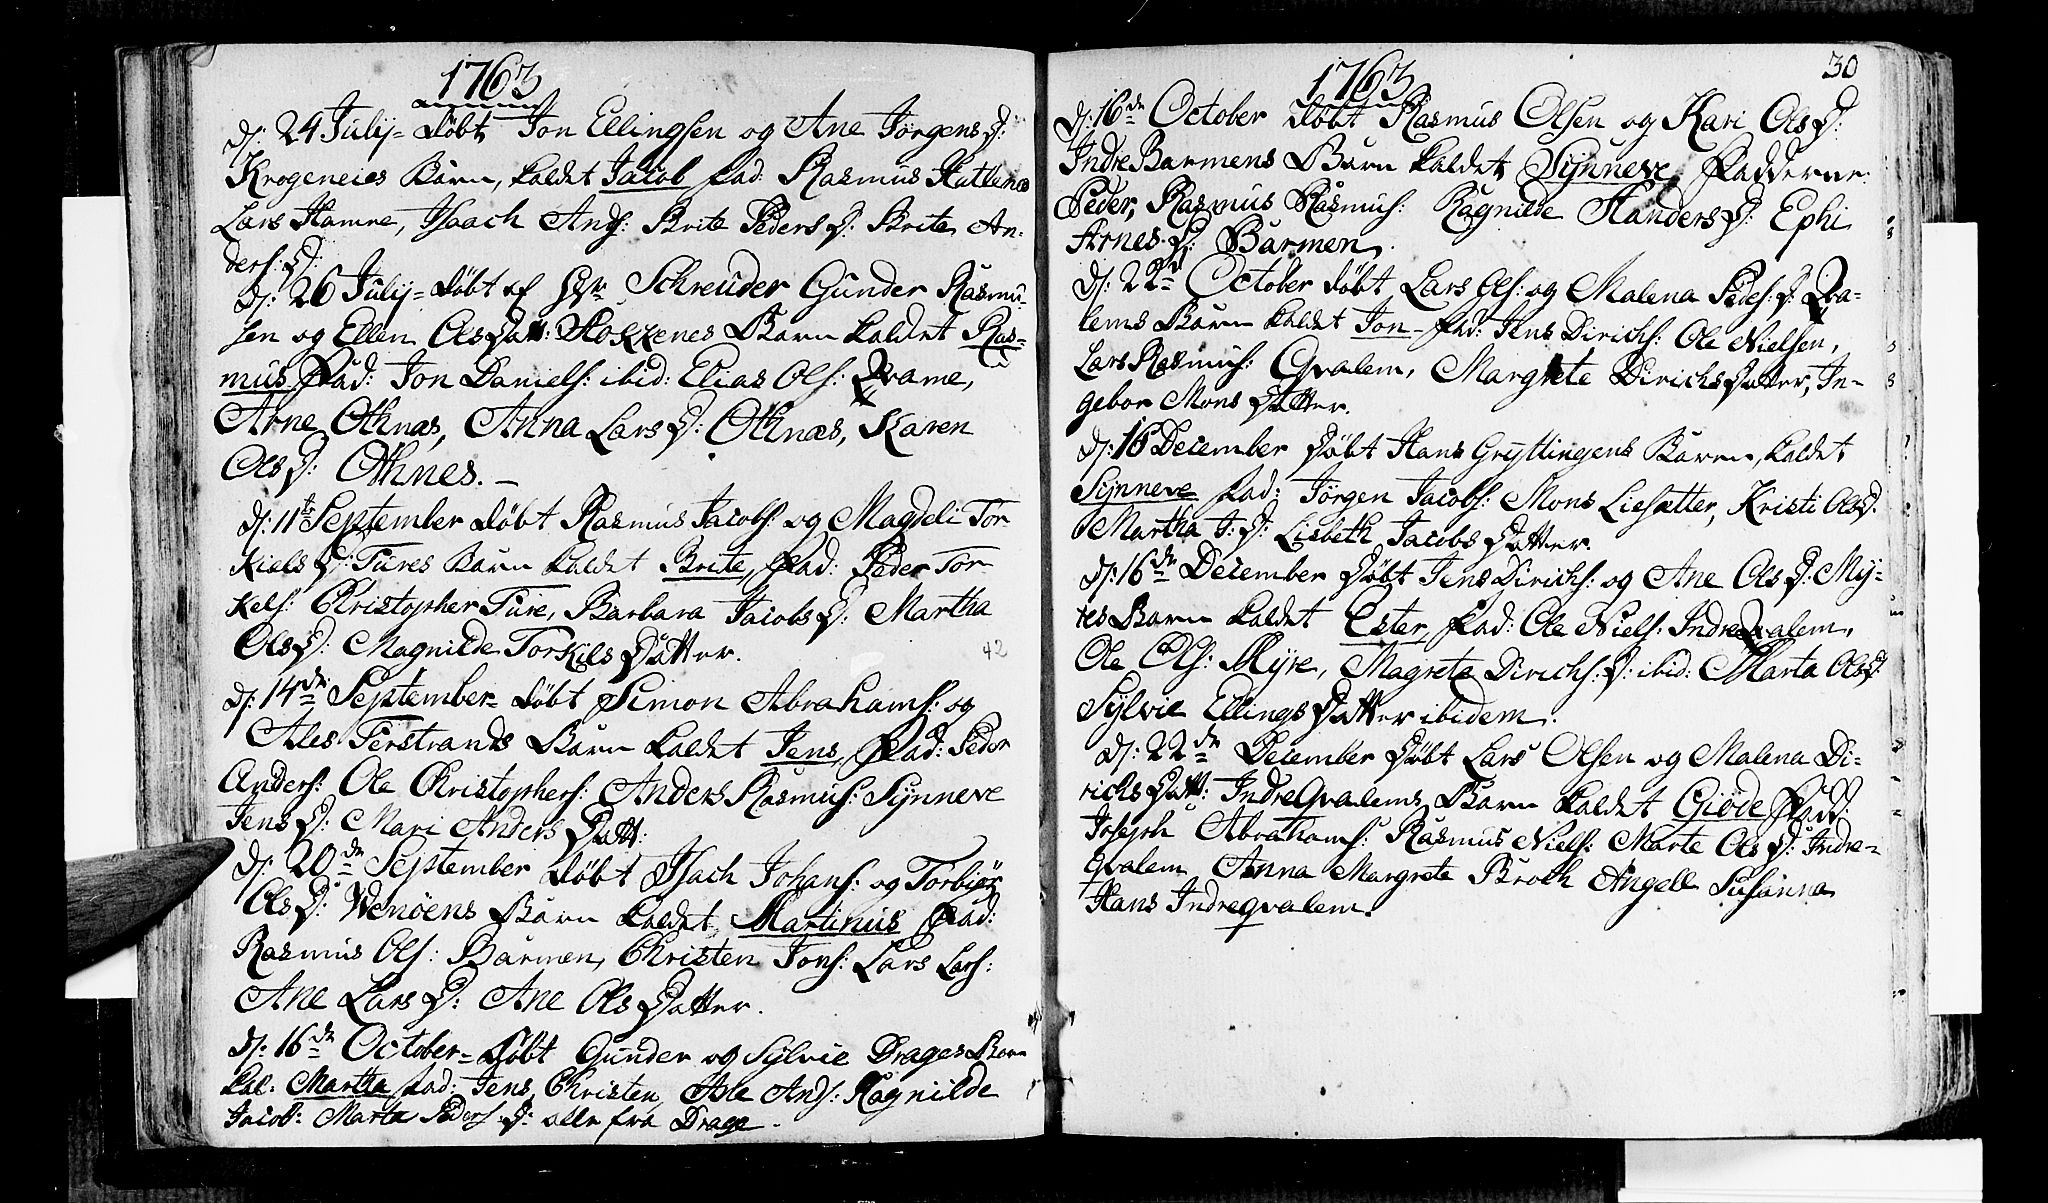 1763
d: 24 July= döbt Jon Ellingsen og Ane Jörgens D:
Krogeneies Barn, kaldet Jacob fad: Rasmus Hatlenes
Lars Hamre, Isaach And: Brite Peders D: Brite An-
ders: D:
d: 26 July= döbt af Hr Schreuder Gunder Rasmu-
sen og Ellen Ols Datt: Hokxenes Barn kaldet Ras-
mus Fad: Jon Daniels: ibid: Elias Ols: Qvame,
Arne Othnæs, Anna Lars D: Othnæs, Karen
Ols D: Othnes. —
d: 11te September döbt Rasmus Jacobs: og Magdeli Tor
kiels D: Tures Barn kaldet Brite, Fad: Peder Tor
kels: Christopher Ture, Barbara Jacobs D: Martha
Ols D: Magnilde Torkils Datter.
42
d: 14de September= döbt Simon Abrahams: og
Ales Terstrands Barn kaldet Jens, Fad: Peder
Anders: Ole Christophers: Anders Rasmus: Synneve
Jens D: Mari Anders Datt:
d: 20de September döbt Isach Johans: og Torbiör
Ols D: Wenöens Barn kaldet Martinus Fad:
Rasmus Ols: Barmen, Christen Jons: Lars Lars:
Ane Lars D: Ane Ols Datter.
d: 16de October= döbt Gunder og Sylvie Drages Barn
kal: Martha fad: Jens, Christen, Asle And: Ragnilde
Jacob: Marta Peders D: alle fra Drage.
1763
30
d: 16de October döbt Rasmus Olsen og Kari Ols D:
Indre Barmens Barn kaldet Synneve Fadderne:
Peder, Rasmus Rasmus: Ragnilde Handers D: Ephi
Arnes D: Barmen.
d: 22de October döbt Lars Ols: og Malena Peders: D: Qva-
lems Barn kaldet Jon— fad: Jens Dirichs: Ole Nielsen,
Lars Rasmus: Qvalem, Margrete Dirichs Datter, In-
gebor Mons Datter.
d: 16 December Döbt Hans Gryttingens Barn, kaldet
Synneve fad: Jörgen Jacobs: Mons Liesætter, Kristi Ols D:
Martha J: D: Lisbeth Jacobs Datter.
d: 16de December Döbt Jens Dirichs: og Ane Ols D: My-
res Barn kaldet Ester, fad: Ole Niels: Indre Qvalem,
Ole Ols: Myre, Magrete Dirichs: D: ibid: Marta Ols D:
Sylvie Ellings Datter ibidem.
d: 22de December Döbt Lars Olsen og Malena Di-
richs Datt: IndreQvalems Barn kaldet Giöde Fadd
Joseph Abrahams: Rasmus Niels: Marte Ols D: Indre-
qvalem Anna Margrete Broch Angell Susanna
Hans Indreqvalem.